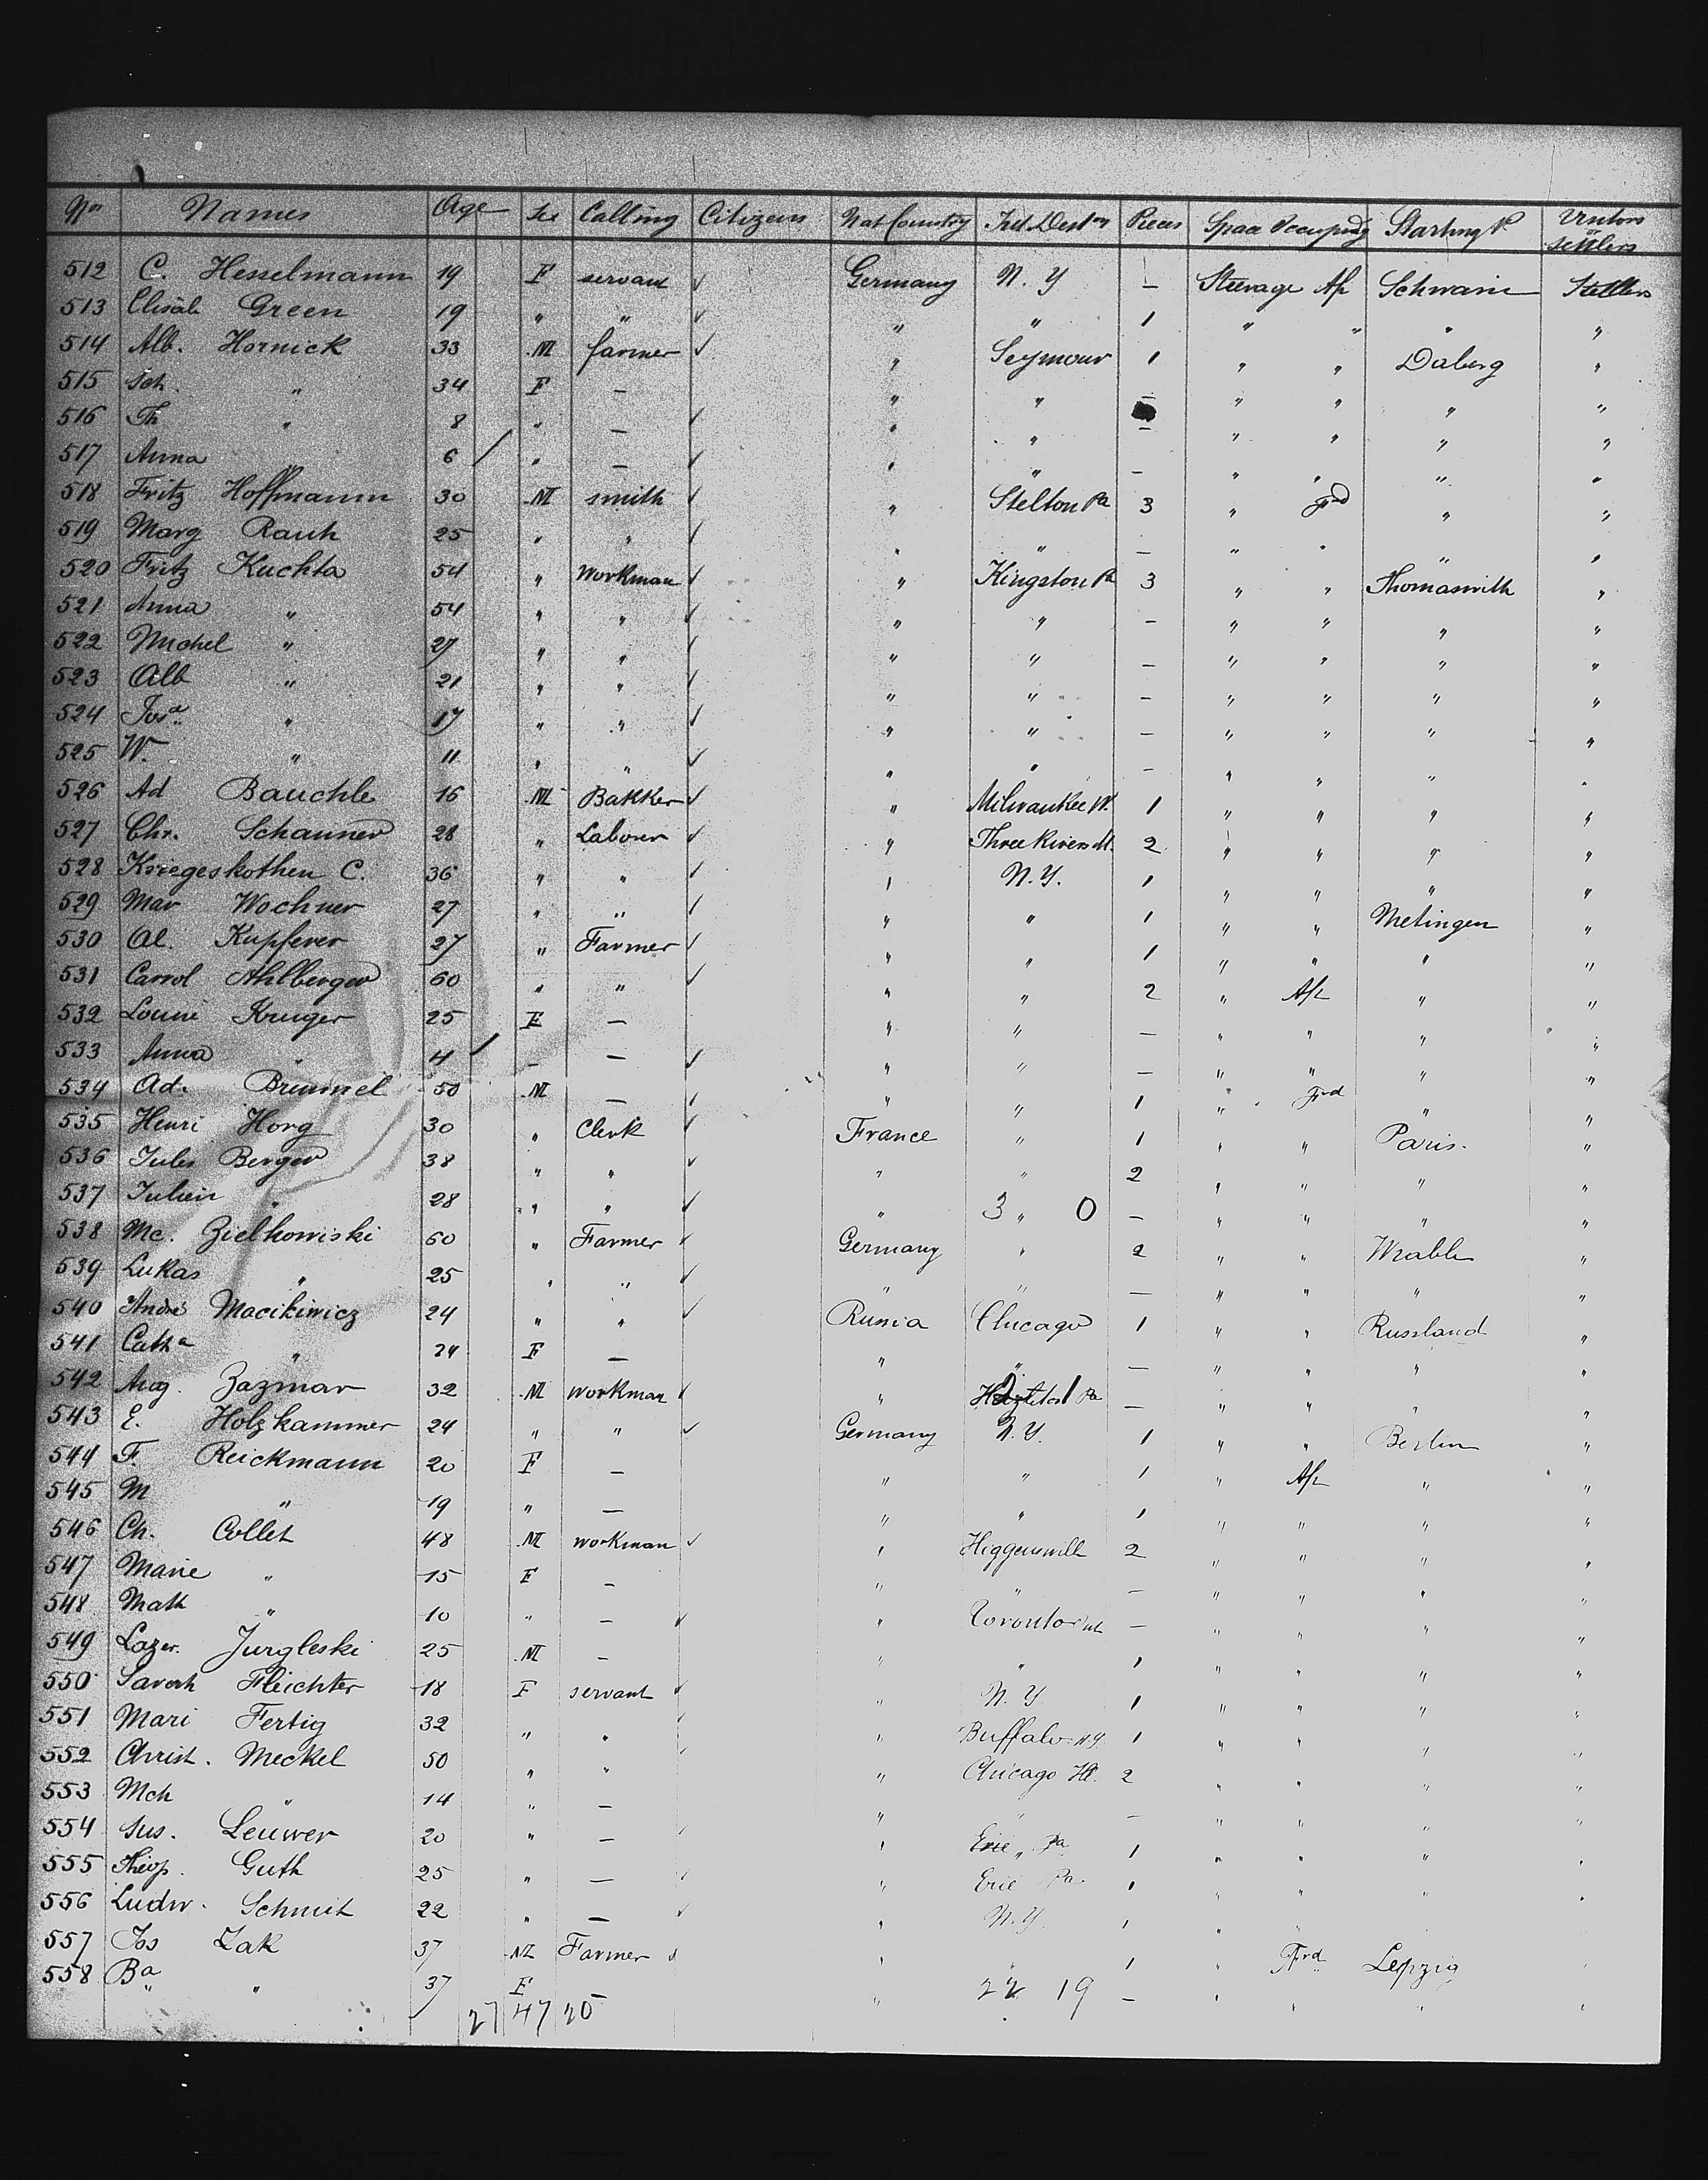 No Names Age Sex Calling Citizens Nat Country Int Deston Pieces Space Occupied Starting P. Visitors or settlers
512 C. Hesselmann 19 F servant ✓ Germany N. Y — Steerage Aft Schwain Settlers
513 Elisab Green 19 " " ✓ " " 1 " " " "
514 Alb. Hornick 33 M farmer ✓ " Seymour 1 " " Daberg "
515 Sch. " 34 F — " " — " " " "
516 Th " 8 " — ✓ " " — " " " "
517 Anna " 6 / " — ✓ " " — " " " "
518 Fritz Hoffmann 30 M smith ✓ " Stelton Pa 3 " Frd " "
519 Marg Rauh 25 " " ✓ " " — " " " "
520 Fritz Kuchta 54 " workman ✓ " Kingston Pa 3 " " Thomaswith "
521 Anna " 54 " " ✓ " " — " " " "
522 Michel " 27 " " ✓ " " — " " " "
523 Alb " 21 " " ✓ " " — " " " "
524 Josa " 17 " " ✓ " " — " " " "
525 W. " 11 " " ✓ " " — " " " "
526 Ad Bauchle 16 M Bakker ✓ " Milwaukee W. 1 " " " "
527 Chr. Schanner 28 " Laborer ✓ " Three Rivers M. 2 " " " "
528 Kriegeskothen C. 36 " " ✓ " N. Y. 1 " " " "
529 Mar Wochner 27 " " ✓ " " 1 " " Metingen "
530 Al. Kupferer 27 " Farmer ✓ " " 1 " " " "
531 Carrol Ahlberger 60 " " ✓ " " 2 " Aft " "
532 Louise Kruger 25 F — " " — " " " "
533 Anna " 4 / — — ✓ " " — " " " "
534 Ad. Brummel 50 M — ✓ " " 1 " Frd " "
535 Henri Horg 30 " Clerk ✓ France " 1 " " Paris. "
536 Jules Berger 38 " " ✓ " " 2 " " " "
537 Julien " 28 " " ✓ " 3 " 0 — " " " "
538 Mc. Zielkowiski 60 " Farmer ✓ Germany " 2 " " Wrable "
539 Lukas " 25 " " ✓ " " — " " " "
540 Andre Macikiwicz 24 " " ✓ Russia Chicago 1 " " Russland "
541 Catha " 24 F — " " — " " " "
542 Aug. Zazmar 32 M workman ✓ " Hazleton Pa — " " " "
543 E. Holzkammer 24 " " ✓ Germany N. Y. 1 " " Berlin "
544 F. Reickmann 20 F — " " 1 " Aft " "
545 M " 19 " — " " 1 " " " "
546 Ch. Collet 48 M workman ✓ " Higgenswill 2 " " " "
547 Marie " 15 F — " " — " " " "
548 Math " 10 " — ✓ " Toronto — " " " "
549 Lazer. Jurgleski 25 M — " " 1 " " " "
550 Saverh Fleichter 18 F servant ✓ " N. Y 1 " " " "
551 Mari Fertig 32 " " ✓ " Buffalo N Y 1 " " " "
552 Christ. Meckel 50 " " ✓ " Chicago Ill. 2 " " " "
553 Mch " 14 " — " " — " " " "
554 Sus. Leuwer 20 " — ✓ " Erie Pa 1 " " " "
555 Theop. Guth 25 " — ✓ " Erie Pa. 1 " " " "
556 Ludw. Schmit 22 " — ✓ " N. Y. 1 " " " "
557 Jos Zak 37 M Farmer ✓ " " 1 " Frd Lepzig "
558 Ba " 37 F " 22 19 — " " " "
27 47 20